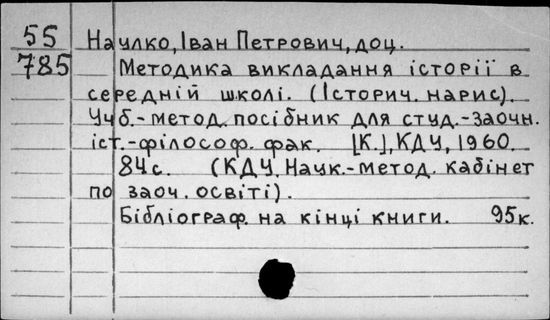 55 Наулко, Іван Петрович, доц.
785 Методика викладання історії в
середній школі. (Історич. нарис).
Учб.-метод. посібник для студ.-заочн.
іст.-філософ. фак. [К.], КДУ, 1960.
84с. (КДУ. Наук.-метод. кабінет
по заоч. освіті).
Бібліограф. на кінці книги. 95к.